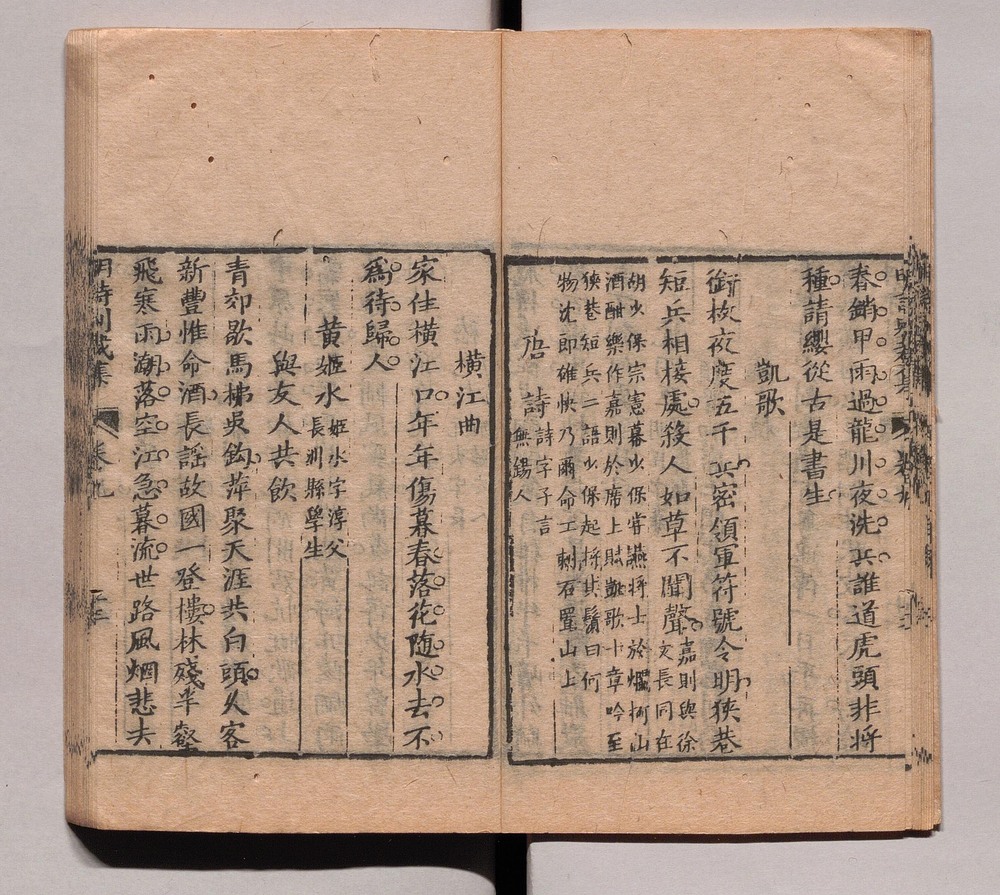 春銷甲雨過龍川夜洗兵誰道虎頭非將
種請纓從古是書生
凱歌
銜枚夜度五千兵密領軍符號令明狹巷
短兵相接處殺人如草不聞聲嘉則與徐
文長同在
胡少保宗憲幕少保嘗讌將士於爛柯山
酒酣樂作嘉則於席上賦凱歌十章吟至
狹巷短兵二語少保起捋其鬚曰何
物沈郎雄快乃爾命工刻石置山上
詩詩字子言
無錫人
橫江曲
家住橫江口年年傷暮春落花隨水去不
爲待歸人
黃姬水姬水字淳父
長洲縣學生
與友人共飲
青郊歇馬拂吳鈎萍聚天涯共白頭久客
新豐惟命酒長謡故國一登樓林殘半壑
飛寒雨潮落空江急暮流世路風烟悲夫
明詩別裁集
卷九